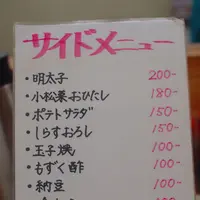 サイドメニュー
・明太子 200-
・小松菜おひたし 180-
・ポテトサラダ 150-
・しらすおろし 150-
・玉子焼 100-
・もずく酢 100-
・納豆 100-